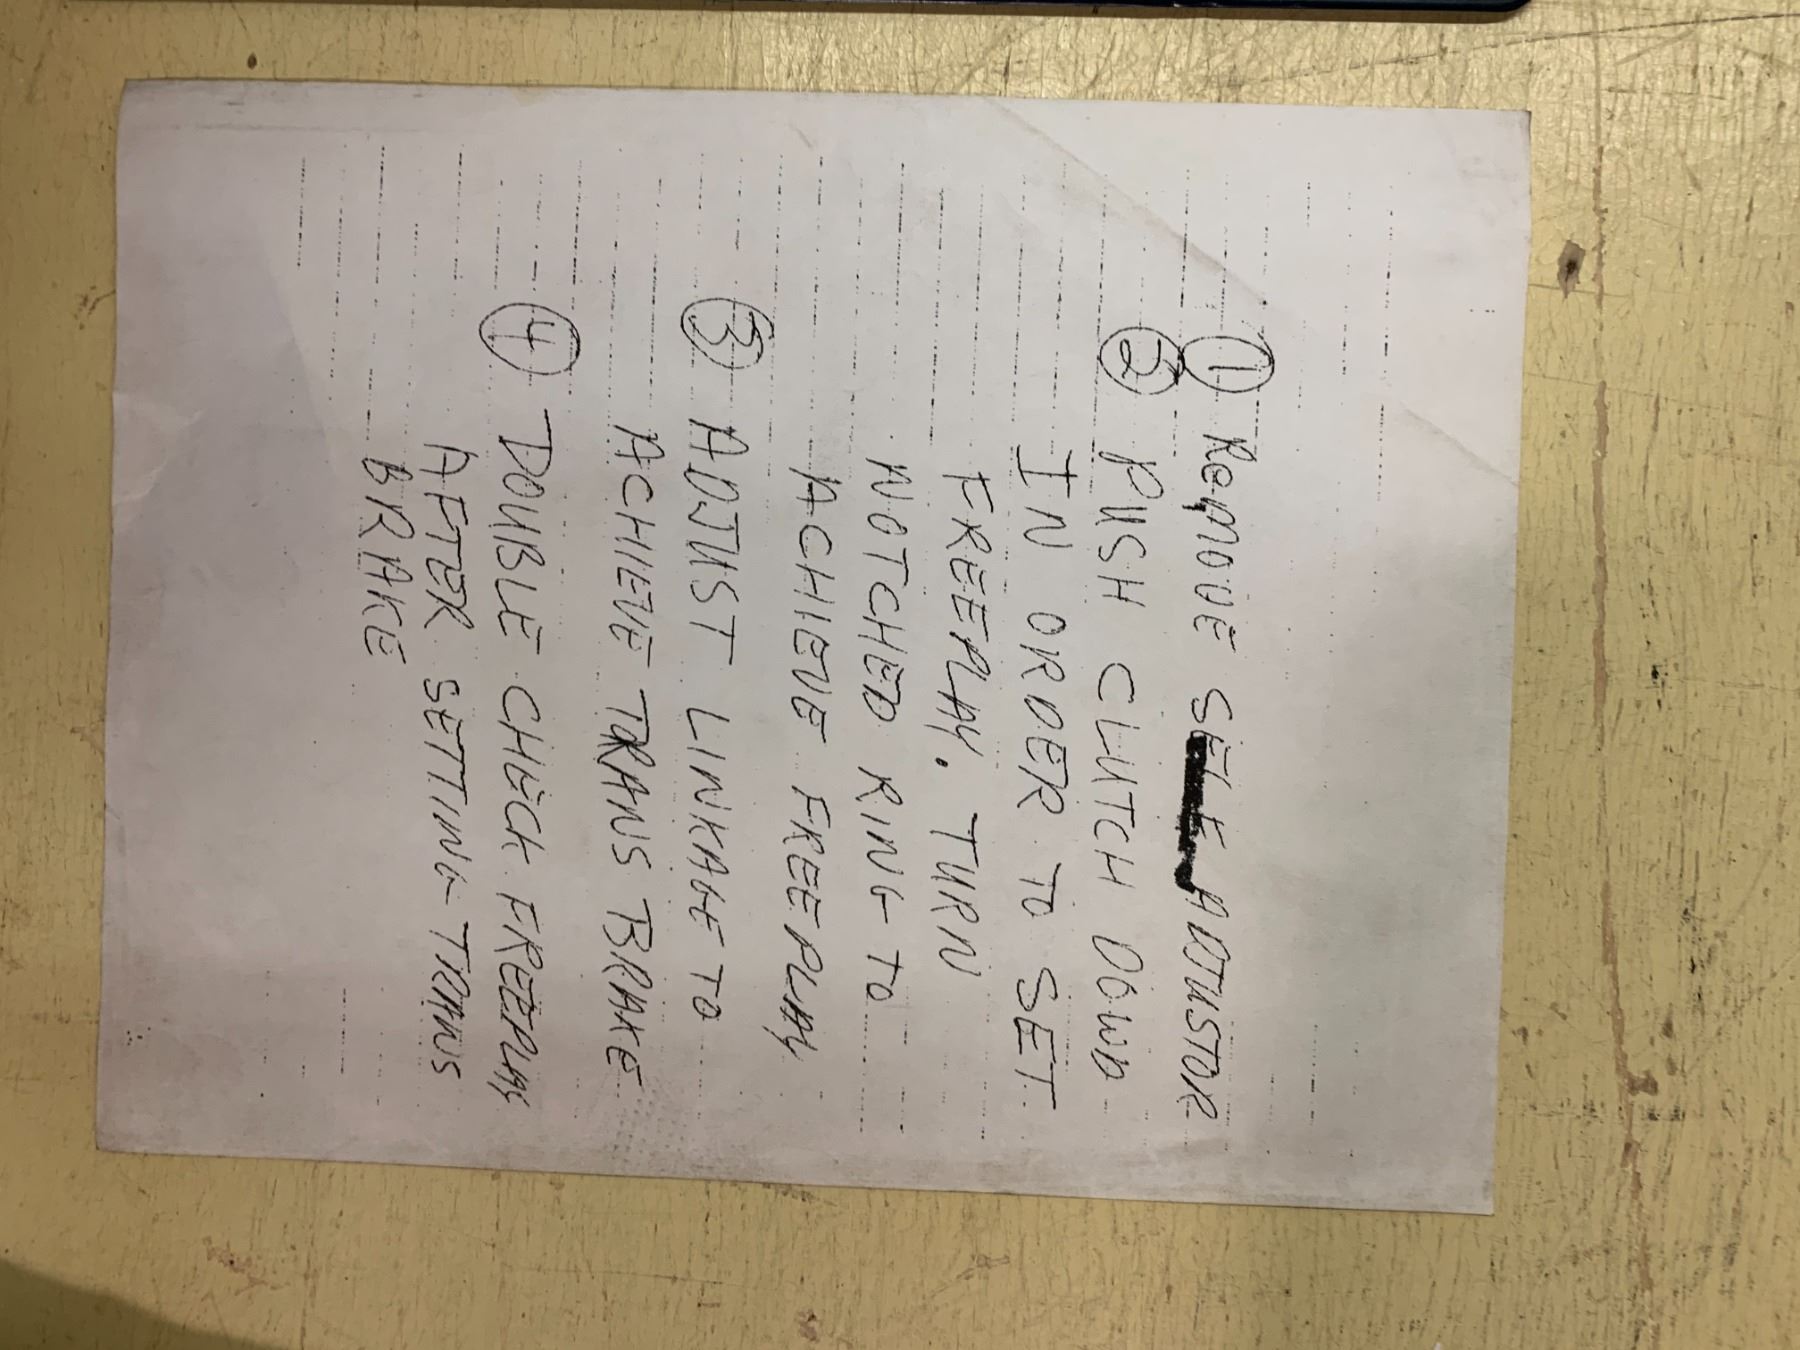 ① Remove SELF ADJUSTOR
② PUSH CLUTCH DOWN
IN ORDER TO SET
FREEPLAY. TURN
NOTCHED RING TO
ACHIEVE FREEPLAY
③ ADJUST LINKAGE TO
ACHIEVE TRANS BRAKE
④ DOUBLE CHECK FREEPLAY
AFTER SETTING TRANS
BRAKE